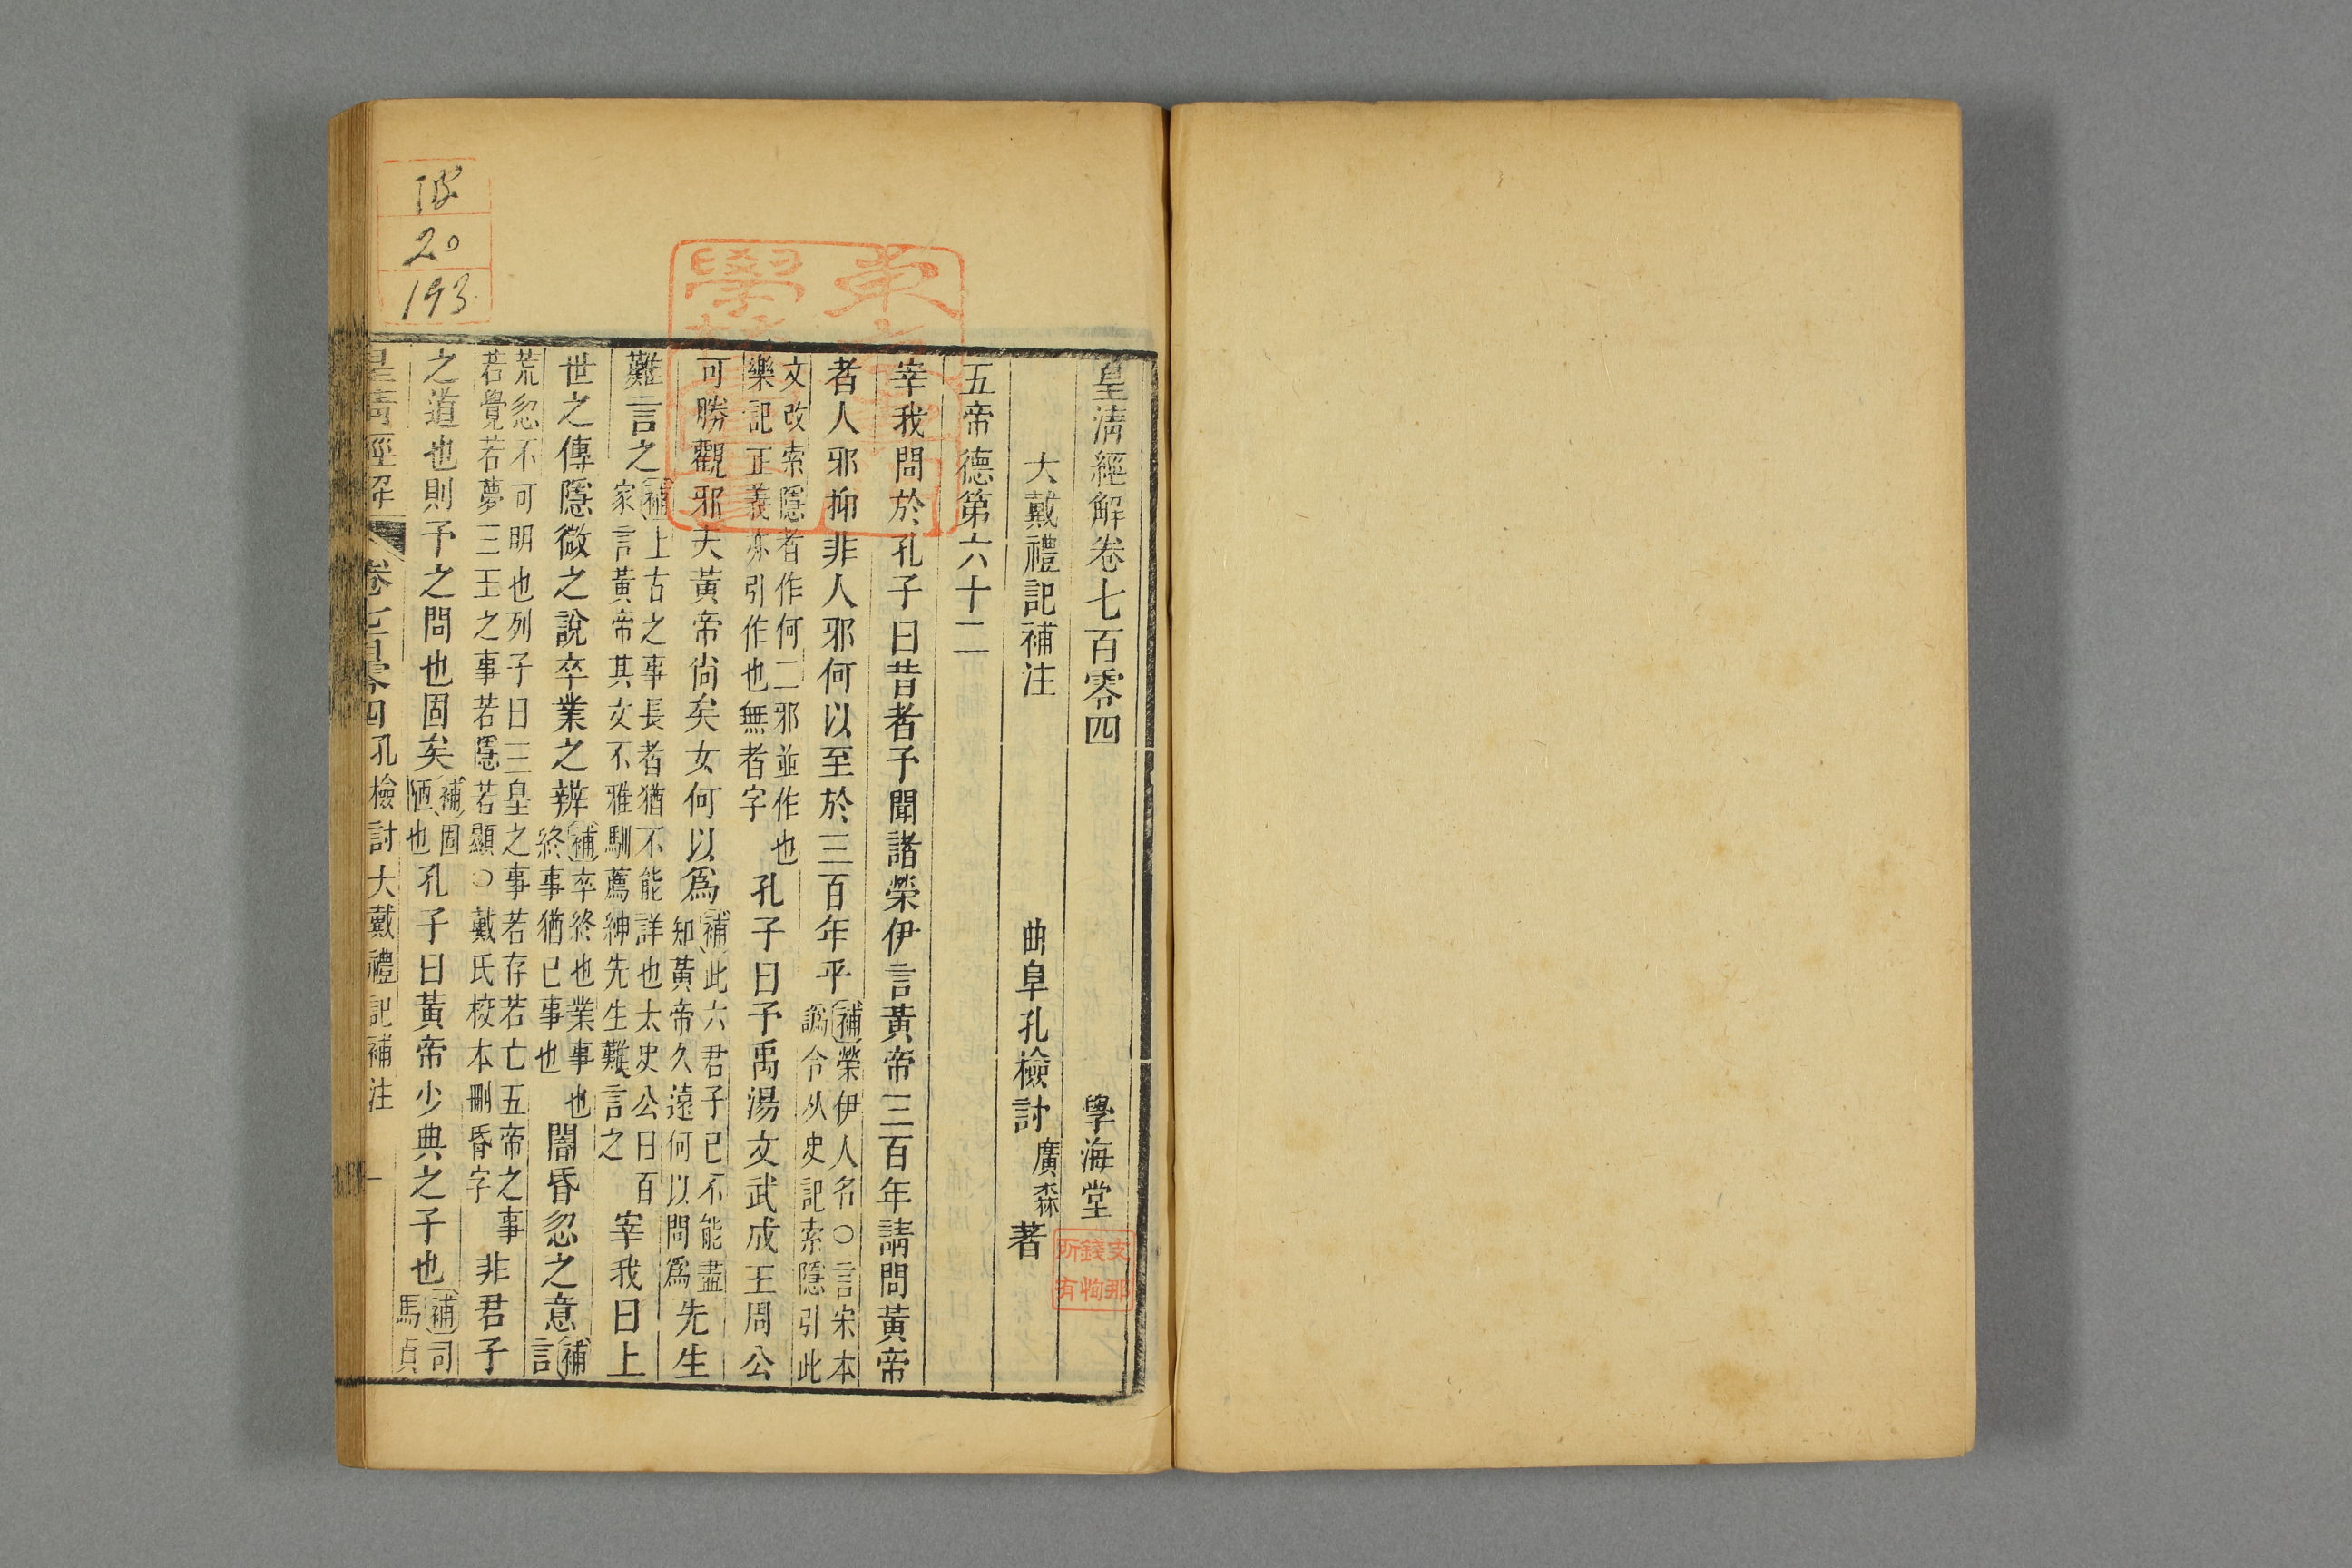 皇清經解卷七百零四
學海堂
大戴禮記補注
曲阜孔檢討廣森著
五帝德第六十二
宰我問於孔子曰昔者予聞諸榮伊言黃帝三百年請問黃帝
者人邪抑非人邪何以至於三百年乎補榮伊人名○言宋本
譌令从史記索隱引此
文改索隱者作何二邪並作也
樂記正義亦引作也無者字
孔子曰予禹湯文武成王周公
可勝觀邪夫黃帝尚矣女何以爲補此六君子已不能盡
知黃帝久遠何以問爲
先生
難言之補上古之事長者猶不能詳也太史公曰百
家言黃帝其文不雅馴薦紳先生難言之
宰我曰上
世之傳隱微之說卒業之辨補卒終也業事也
終事猶已事也
闇昏忽之意補
言
荒忽不可明也列子曰三皇之事若存若亡五帝之事
若覺若夢三王之事若隱若顯○戴氏校本刪昏字
非君子
之道也則予之問也固矣補固
陋也
孔子曰黃帝少典之子也補司
馬貞
皇清經解 卷七百零四 孔檢討大戴禮記補注 一
支那
錢恂
所有
20
193